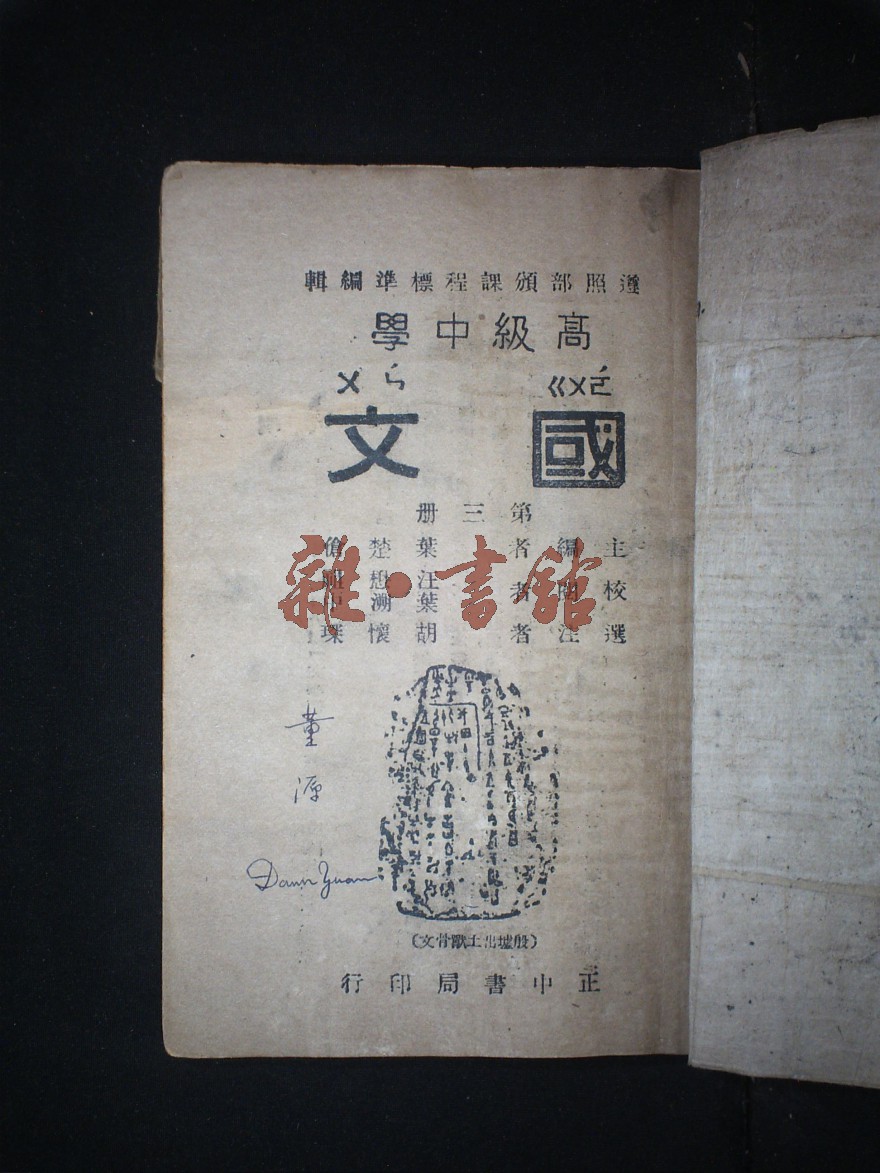 遵照部頒課程標準編輯
高級中學
ㄍㄨㄛˊ ㄨㄣˊ
國文
第三册
主編者 葉楚傖
校閱者 汪懋
葉溯中
選注者 胡懷琛
雜·書館
董源
Yuan
(殷墟出土獸骨文)
正中書局印行